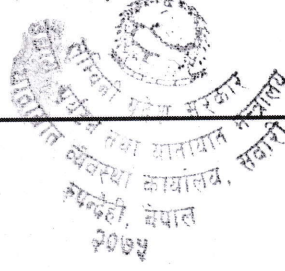 लुम्बिनी प्रदेश सरकार
पूर्वाधार तथा यातायात मन्त्रालय
यातायात व्यवस्था कार्यालय, सवारी
रुपन्देही, नेपाल
२०७५